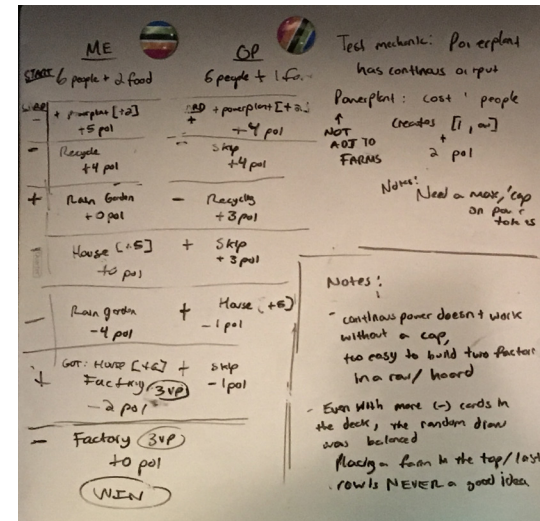 ME
START 6 people + 2 food
+ powerplant [+2]
+5 pol
- Recycle
+4 pol
+ Rain Garden
+0 pol
House [+5]
to pol
- Rain garden
-4 pol
+ GOT: House [+6]
Factory 3VP
-2 pol
- Factory 3VP
to pol
WIN
OP
6 people + 1
+ powerplant
+4 pol
- Skip
+4 pol
- Recycling
+3 pol
+ Skip
+3 pol
+ House
-1 pol
+ Skip
-1 pol
Test mechanic: Powerplant
has continous output
Powerplant: cost people
creates
+
2 pol
NOT
ADJ TO
FARMS
Notes:
Need a max/cap
on
Notes:
- continous power doesn't work
without a cap,
too easy to build two factor
in a row/hoard
- Even with more (-) cards in
the deck, the random draw
was balanced
Placing a farm in the top/last
row is NEVER a good idea